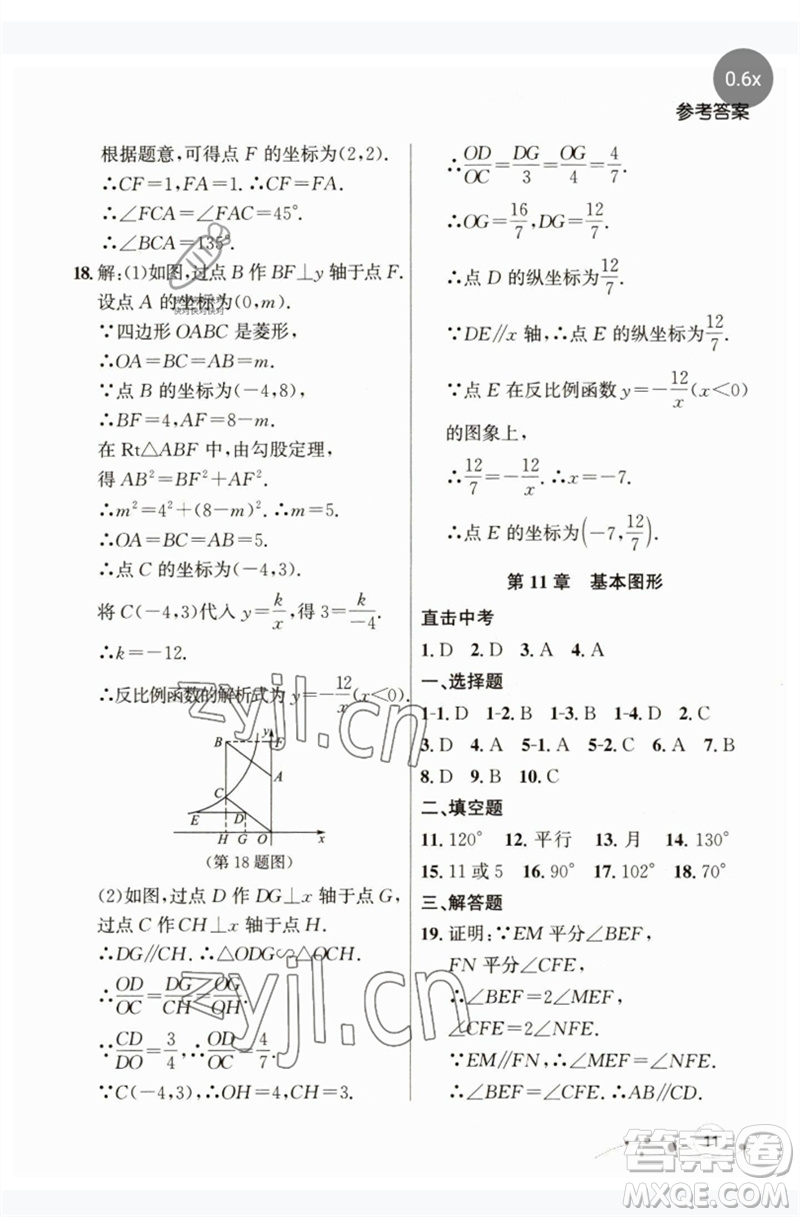 0.6x
参考答案
根据题意,可得点 F 的坐标为(2,2).
∴CF=1,FA=1. ∴CF=FA.
∴∠FCA=∠FAC=45°.
∴∠BCA=135°.
18. 解:(1)如图,过点 B 作 BF⊥y 轴于点 F.
设点 A 的坐标为(0,m).
∵四边形 OABC 是菱形,
∴OA=BC=AB=m.
∵点 B 的坐标为(-4,8),
∴BF=4,AF=8-m.
在 Rt△ABF 中,由勾股定理,
得 AB²=BF²+AF².
∴m²=4²+(8-m)². ∴m=5.
∴OA=BC=AB=5.
∴点 C 的坐标为(-4,3).
将 C(-4,3)代入 y=k/x,得 3=k/-4.
∴k=-12.
∴反比例函数的解析式为 y=-12/x(x<0).
B F y
A
C
E D
H G O x
(第 18 题图)
(2)如图,过点 D 作 DG⊥x 轴于点 G,
过点 C 作 CH⊥x 轴于点 H.
∴DG∥CH. ∴△ODG∽△OCH.
∴OD/OC=DG/CH=OG/OH.
∵CD/DO=3/4,∴OD/OC=4/7.
∵C(-4,3),∴OH=4,CH=3.
∴OD/OC=DG/3=OG/4=4/7.
∴OG=16/7,DG=12/7.
∴点 D 的纵坐标为12/7.
∵DE∥x 轴,∴点 E 的纵坐标为12/7.
∵点 E 在反比例函数 y=-12/x(x<0)
的图象上,
∴12/7=-12/x. ∴x=-7.
∴点 E 的坐标为(-7,12/7).
第 11 章 基本图形
直击中考
1. D 2. D 3. A 4. A
一、选择题
1-1. D 1-2. B 1-3. B 1-4. D 2. C
3. D 4. A 5-1. A 5-2. C 6. D 7. B
8. D 9. B 10. C
二、填空题
11. 120° 12. 平行 13. 月 14. 130°
15. 11 或 5 16. 90° 17. 102° 18. 70°
三、解答题
19. 证明:∵EM 平分∠BEF,
FN 平分∠CFE,
∴∠BEF=2∠MEF,
∠CFE=2∠NFE.
∵EM∥FN,∴∠MEF=∠NFE.
∴∠BEF=∠CFE. ∴AB∥CD.
11
zyjl.cn
zyjl.cn
答案圈
MXQE.COM